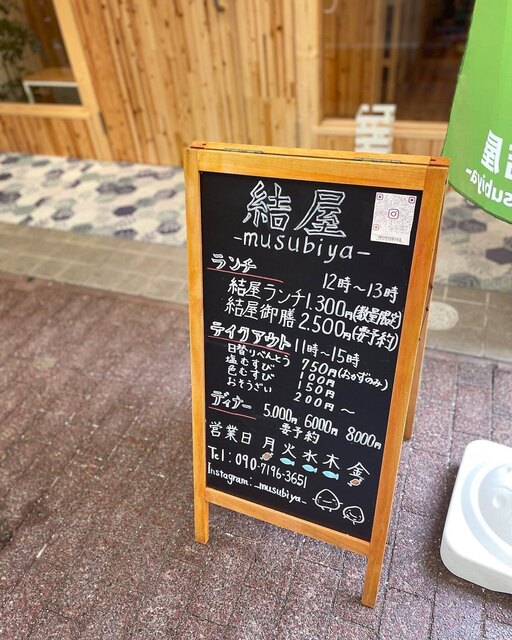 結屋
-musubiya-
ランチ 12時〜13時
結屋ランチ 1.300円(数量限定)
結屋御膳 2.500円(要予約)
テイクアウト 11時〜15時
日替りべんとう 750円(おかずのみ)
塩むすび 100円
色むすび 150円
おそうざい 200円〜
ディナー 5.000円 6000円 8000円
要予約
営業日 月 火 水 木 金
Tel:090-7196-3651
Instagram:_musubiya_
屋